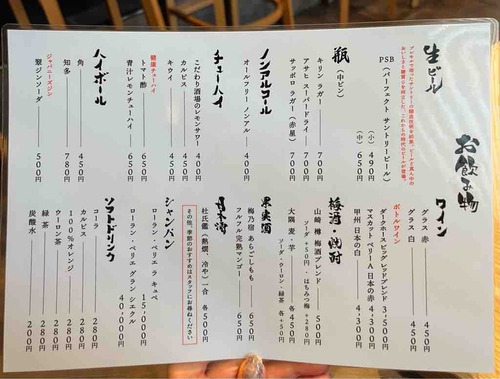 お飲み物
生ビール
PSB（パーフェクト サントリービール）
（小） 490円
（中） 650円
瓶（中ビン）
キリン ラガー 700円
アサヒ スーパードライ 700円
サッポロ ラガー（赤星） 700円
ノンアルコール
オールフリー ノンアル 400円
チューハイ
こだわり酒場のレモンサワー 400円
カルピス 450円
キウイ 450円
健康チューハイ
トマト酢 650円
青汁レモンチューハイ 650円
ハイボール
角 450円
知多 780円
ジャパニーズジン
翠ジンソーダ 500円
ワイン
グラス 赤 450円
グラス 白 450円
ボトルワイン
ダークホース ビッグ レッドブレンド 3,500
マスカットベリーA 日本の赤 4,300円
甲州 日本の白 4,300円
梅酒・焼酎
山崎 樽 梅酒ブレンド 500円
ソーダ +50円・はちみつ梅 +280円
大隅 麦・芋 各450円
ソーダ・ウーロン・緑茶 各+50円
果実酒
梅乃宿 あらごしもも 650円
フルフル完熟マンゴー 650円
日本酒
杜氏鑑（熱燗、冷や）一合 各500円
その他、季節のおすすめはスタッフにお尋ねください
シャンパン
ローラン・ペリエ ラ キュベ 15,000円
ローラン・ペリエ グラン シエクル 40,000円
ソフトドリンク
コーラ 280円
カルピス 280円
100%オレンジ 280円
ウーロン茶 280円
緑茶 280円
炭酸水 200円